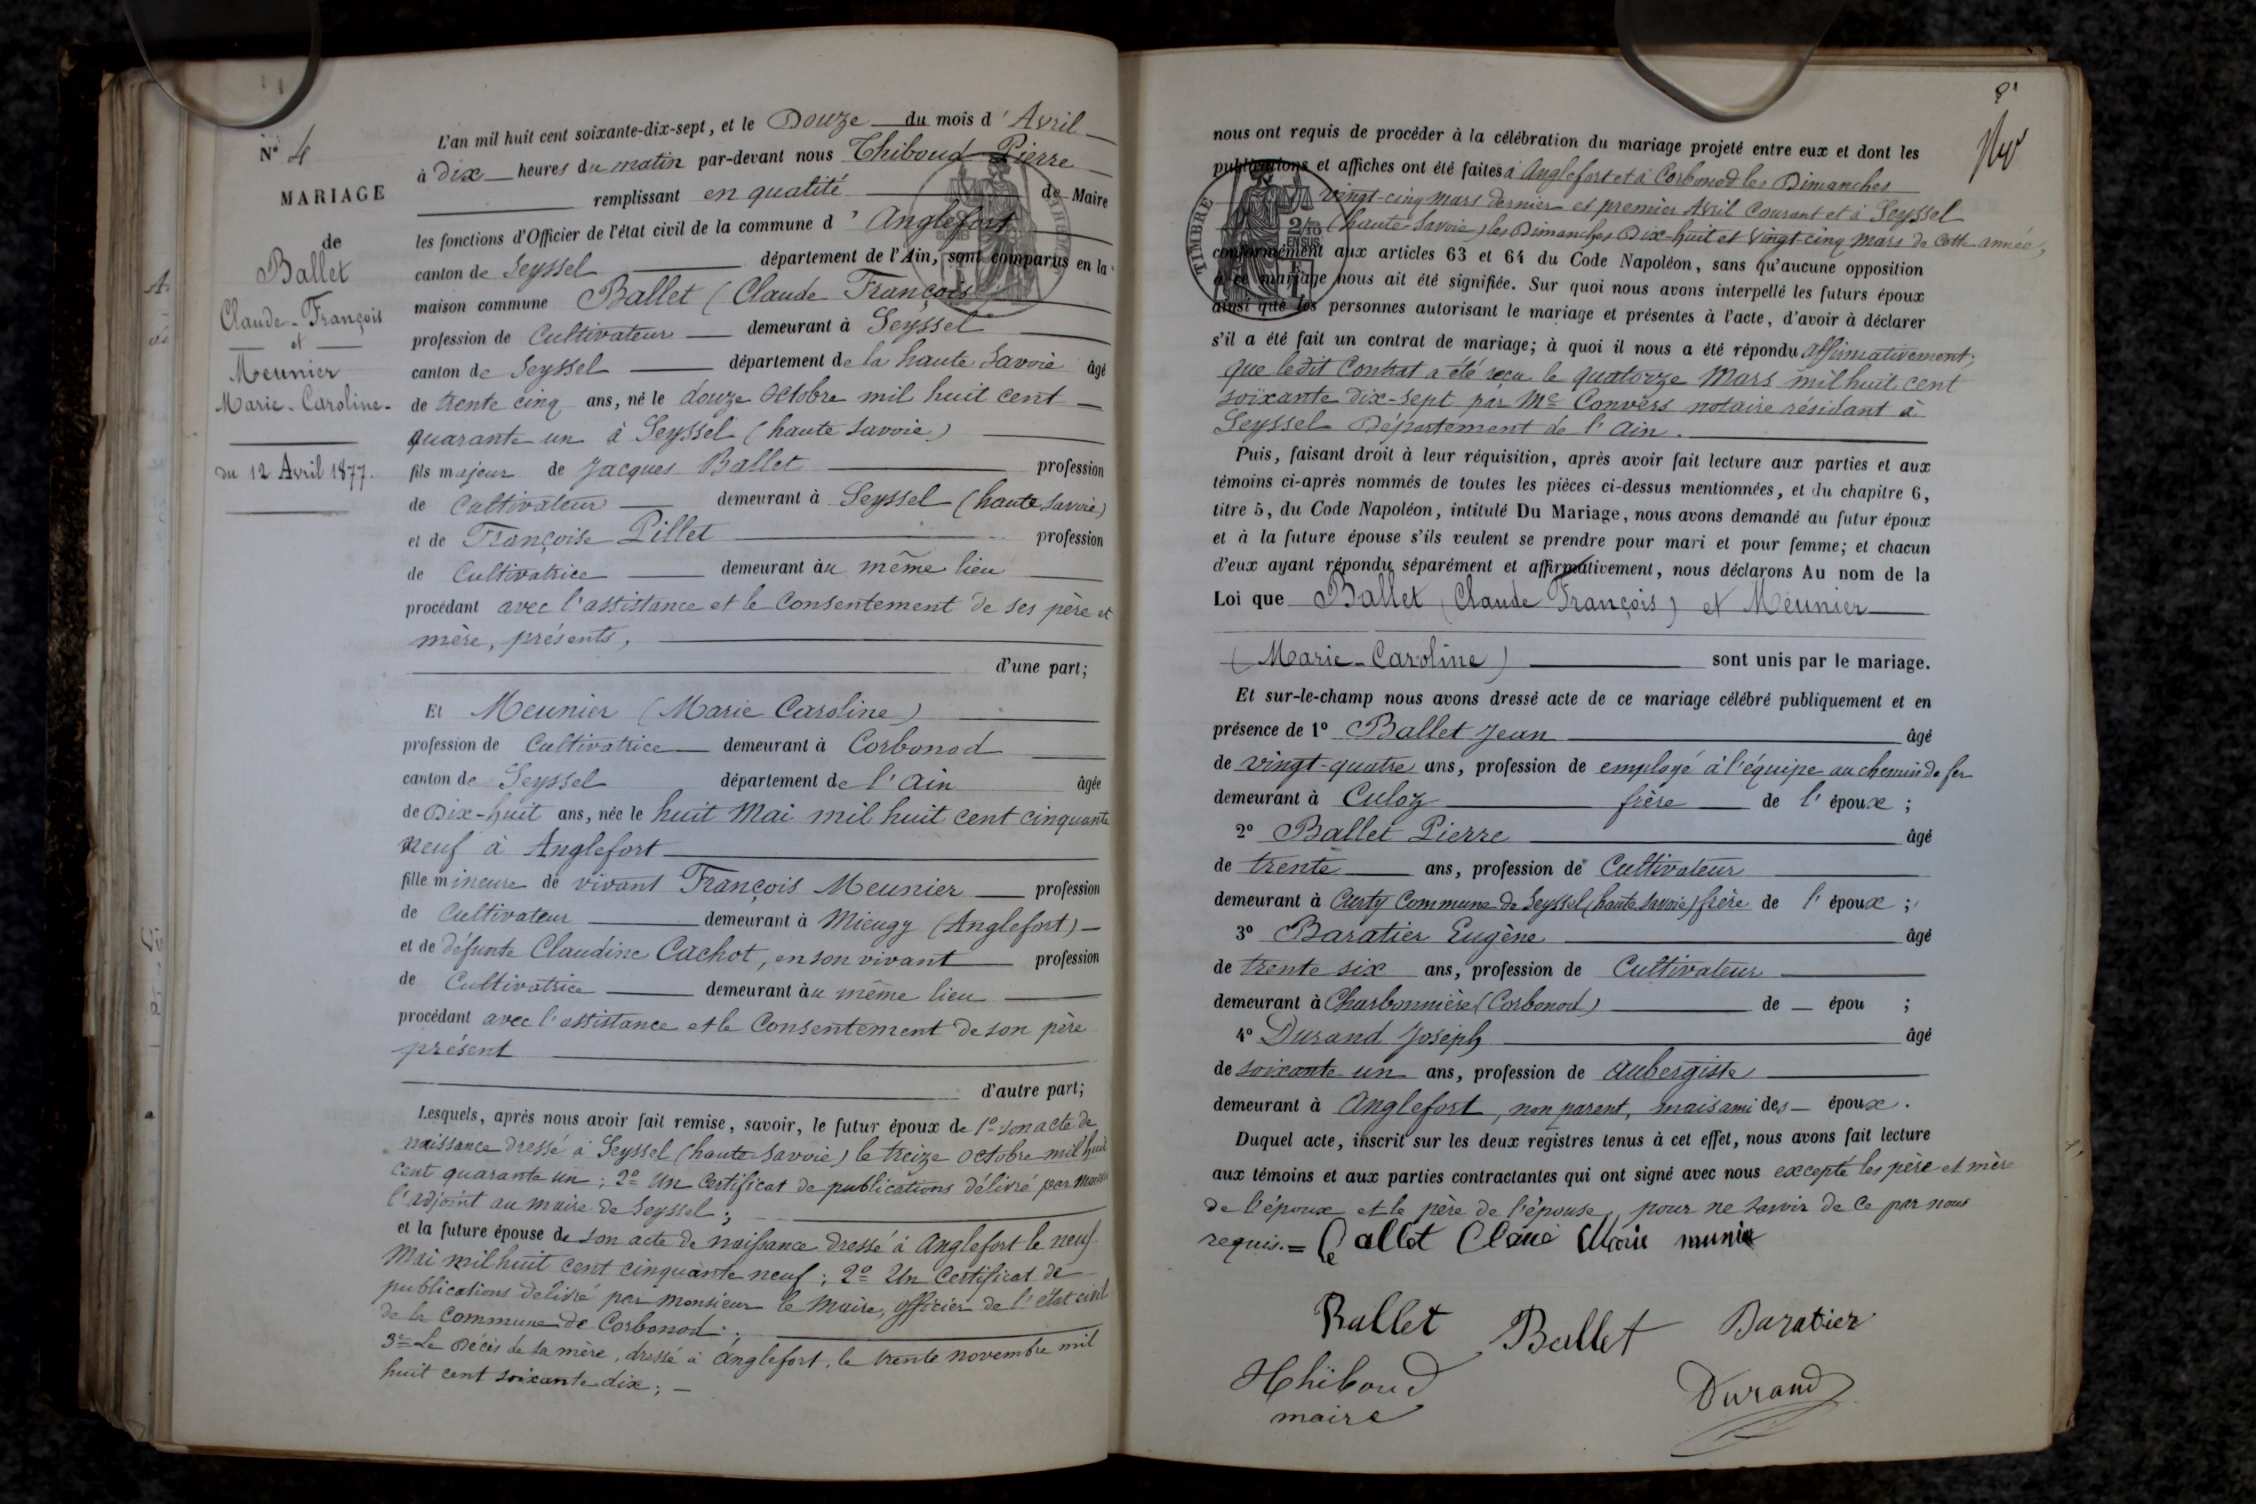 Nº 4
MARIAGE
de
Ballet
Claude-François
et
Meunier
Marie-Caroline-
du 12 Avril 1877.
L'an mil huit cent soixante-dix-sept, et le Douze du mois d'Avril
à Dix heures du matin par-devant nous Thiboud Pierre
remplissant en qualité de Maire
les fonctions d'Officier de l'état civil de la commune d'Anglefort
canton de Seyssel département de l'Ain, sont comparus en la
maison commune Ballet (Claude François
profession de Cultivateur demeurant à Seyssel
canton de Seyssel département de la haute Savoie âgé
de trente cinq ans, né le douze Octobre mil huit cent
quarante un à Seyssel (haute Savoie)
fils majeur de Jacques Ballet profession
de Cultivateur demeurant à Seyssel (haute Savoie)
et de Françoise Pillet profession
de Cultivatrice demeurant au même lieu
procédant avec l'assistance et le Consentement de ses père et
mère, présents,
d'une part;
Et Meunier (Marie Caroline)
profession de Cultivatrice demeurant à Corbonod
canton de Seyssel département de l'Ain âgée
de Dix-huit ans, née le huit Mai mil huit cent cinquante
neuf à Anglefort
fille mineure de vivant François Meunier profession
de Cultivateur demeurant à Mieugy (Anglefort)
et de défunte Claudine Cachot, en son vivant profession
de Cultivatrice demeurant au même lieu
procédant avec l'assistance et le Consentement de son père
présent
d'autre part;
Lesquels, après nous avoir fait remise, savoir, le futur époux de 1º son acte de
naissance dressé à Seyssel (haute Savoie) le treize Octobre mil huit
cent quarante un; 2º Un Certificat de publications délivré par
l'adjoint au maire de Seyssel;
et la future épouse de son acte de naissance dressé à Anglefort le neuf
Mai mil huit cent cinquante neuf; 2º Un Certificat de
publications délivré par monsieur le Maire, officier de l'état civil
de la Commune de Corbonod;
3º Le Décès de sa mère, dressé à Anglefort, le trente novembre mil
huit cent soixante dix; -
nous ont requis de procéder à la célébration du mariage projeté entre eux et dont les
publications et affiches ont été faites à Anglefort et à Corbonod les Dimanches
vingt-cinq mars dernier et premier Avril Courant et à Seyssel
(haute Savoie) les Dimanches Dix-huit et vingt-cinq Mars de cette année,
conformément aux articles 63 et 64 du Code Napoléon, sans qu'aucune opposition
à ce mariage nous ait été signifiée. Sur quoi nous avons interpellé les futurs époux
ainsi que les personnes autorisant le mariage et présentes à l'acte, d'avoir à déclarer
s'il a été fait un contrat de mariage; à quoi il nous a été répondu affirmativement;
que ledit Contrat a été reçu le quatorze Mars mil huit cent
soixante dix-sept par Mᵉ Convers notaire résidant à
Seyssel Département de l'Ain.
Puis, faisant droit à leur réquisition, après avoir fait lecture aux parties et aux
témoins ci-après nommés de toutes les pièces ci-dessus mentionnées, et du chapitre 6,
titre 5, du Code Napoléon, intitulé Du Mariage, nous avons demandé au futur époux
et à la future épouse s'ils veulent se prendre pour mari et pour femme; et chacun
d'eux ayant répondu séparément et affirmativement, nous déclarons Au nom de la
Loi que Ballet (Claude François) et Meunier
(Marie-Caroline) sont unis par le mariage.
Et sur-le-champ nous avons dressé acte de ce mariage célébré publiquement et en
présence de 1º Ballet Jean âgé
de vingt-quatre ans, profession de employé à l'équipe au chemin de fer
demeurant à Culoz frère de l'époux;
2º Ballet Pierre âgé
de trente ans, profession de Cultivateur
demeurant à Curty Commune de Seyssel (haute Savoie) frère de l'époux;
3º Baratier Eugène âgé
de trente six ans, profession de Cultivateur
demeurant à Charbonnière (Corbonod) de - épou ;
4º Durand Joseph âgé
de soixante un ans, profession de Aubergiste
demeurant à Anglefort, non parent, mais ami des époux.
Duquel acte, inscrit sur les deux registres tenus à cet effet, nous avons fait lecture
aux témoins et aux parties contractantes qui ont signé avec nous excepté les père et mère
de l'époux et le père de l'épouse, pour ne savoir de ce par nous
requis. = Ballet Claude Marie munier
Ballet Ballet Baratier
Thiboud Durand
maire